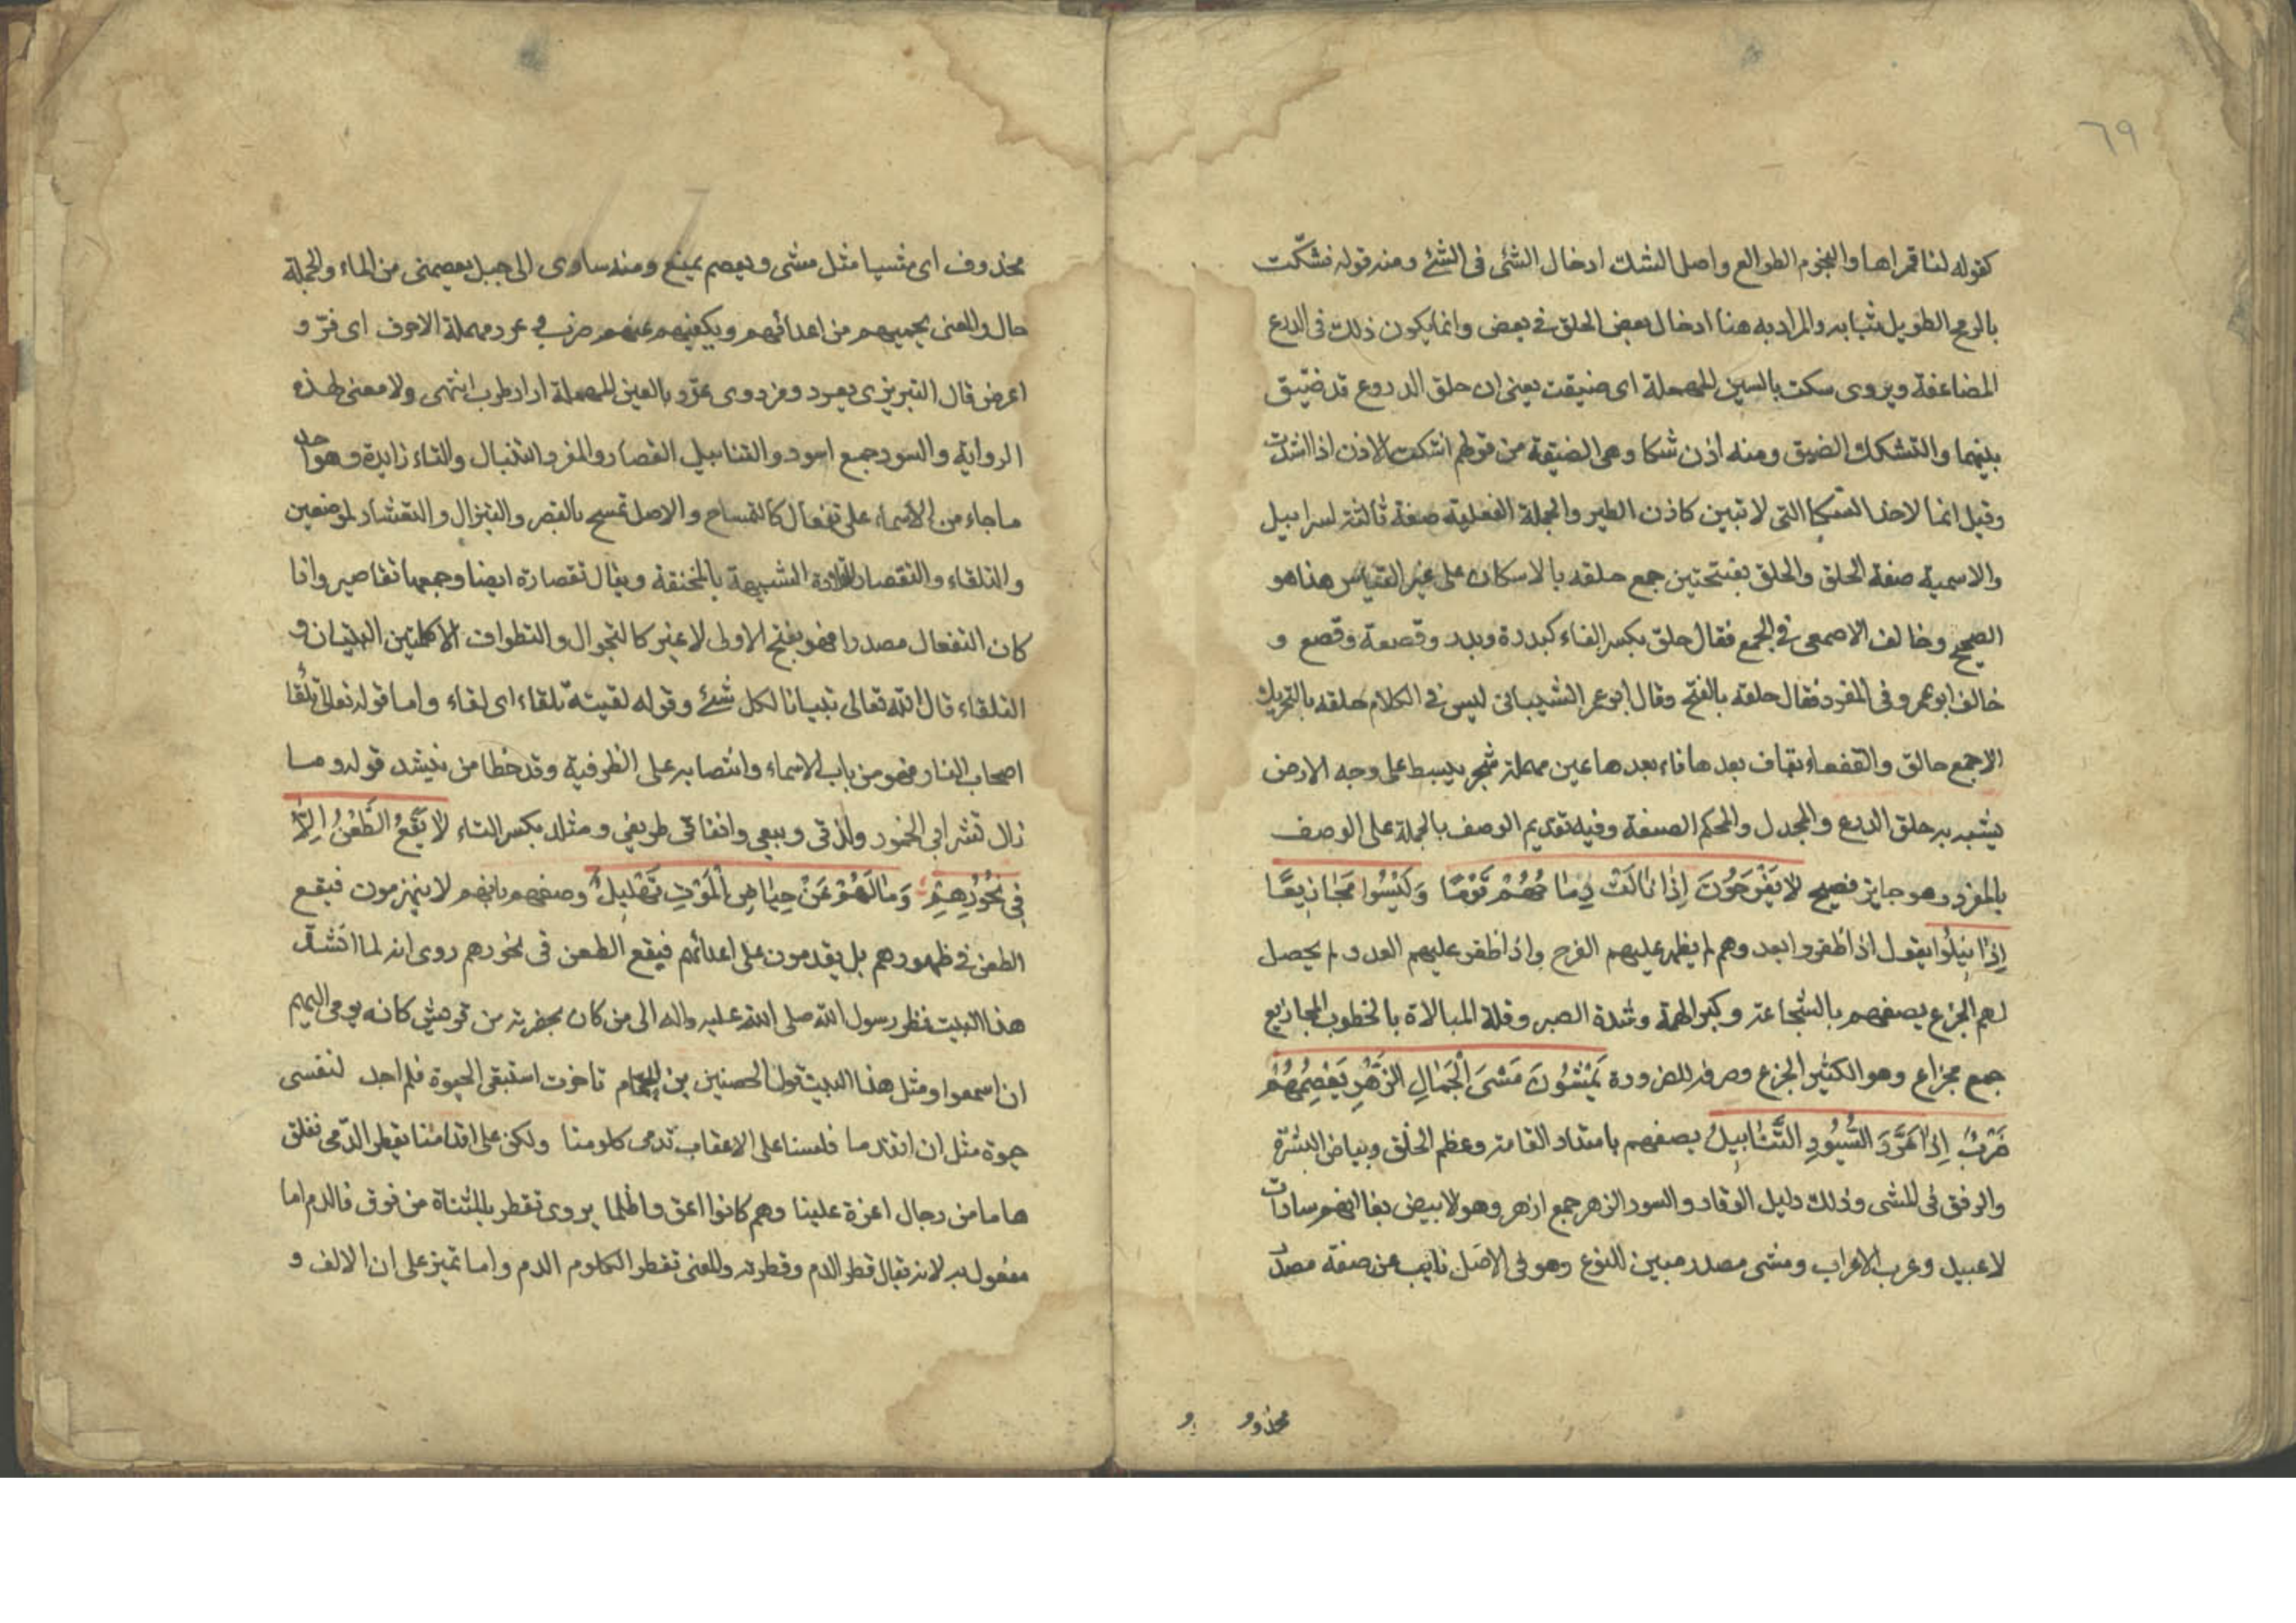 ٦٩
كقوله لنا قمراها والنجوم الطوالع واصل الشك ادخال الشئ فى الشئ ومنه قوله فشكّت
بالرمح الطويل ثيابه والمراد به هنا ادخال بعض الحلق فى بعض وانما يكون ذلك فى الدرع
المضاعفة ويروى سكت بالسين المهملة اى ضيقت يعنى ان حلق الدروع قد ضيّق
بينها والتشكك الضيق ومنه اذن شكا وهى الضيقة من قولهم اشتكت الاذن اذا اشتدت
وقيل انما لاخذ السكا التى لا تبين كاذن الطير والجملة الفعلية صفة ثالثة لسرابيل
والاسمية صفة الحلق والحلق بفتحتين جمع حلقه بالاسكان على غير القياس هذا هو
الصحيح وخالف الاصمعى فى الجمع فقال حلق بكسر الفاء كبدرة وبدر وقصعة وقصع و
خالف ابو عمرو فى المفرد فقال حلقه بالفتح وقال ابو عمر الشيبانى ليس فى الكلام حلقه بالتحريك
الا جمع حالق والقفعاء بقاف بعدها فاء بعدها عين مهملة شجر ينبسط على وجه الارض
يشبه به حلق الدرع والمجدل والمحكم الصنعة وفيه تقديم الوصف بالجملة على الوصف
بالمفرد وهو جايز فصيح لَا يَفْرَحُونَ اِذَا نَالَتْ رِمَاحُهُمْ قَوْمًا وَلَيْسُوا مَجَازِيعًا
اِذَا نِيلُوا يقول اذا ظفروا بعدوهم لم يظهر عليهم الفرح واذا ظفر عليهم العدو لم يحصل
لهم الجزع يصفهم بالشجاعة وكبر الهمة وشدة الصبر وقلة المبالاة بالخطوب المجازيع
جمع مجزاع وهو الكثير الجزع وصرفه للضرورة يَمْشُونَ مَشْىَ الْجِمَالِ الزُّهْرِ يَعْصِمُهُمْ
ضَرْبٌ اِذَا عَرَّدَ السُّودِ التَّنَابِيلُ يصفهم بامتداد القامة وعظم الخلق وبياض البشرة
والرفق فى المشى وذلك دليل الوقار والسود الزهر جمع ازهر وهو لابيض يفا انهم سادات
لا عبيد وعرب لا اعراب ومشى مصدر مبين للنوع وهو فى الاصل نايب عن صفة مصدر
محذوو
محذوف اى مشيا مثل مشى ويعصم يمنع ومنه ساوى الى جبل يعصمنى من الماء والجملة
حال والمعنى يحميهم من اعدائهم ويكفيهم عنهم ضرب و عرد مهملة الاحرف اى فرّ و
اعرض قال التبريزى يعرد وفر وروى غرّد بالغين المعجمة اراد طرب انتهى ولا معنى لهذه
الرواية والسود جمع اسود والتنابيل القصار والمفرد التنبال والتاء زايدة وهو احد
ما جاء من الاسماء على تفعال كالتمساح والاصل تمسح بالقصر والتنزال والتعشار لموضعين
والتلقاء والتقصار القلادة الشبيهة بالمخنقة ويقال تقصارة ايضا وجمعها تقاصير واذا
كان التفعال مصدرا فهو بفتح الاولى لا غير كالتجوال والتطواف الا كلمتين التبيان و
التلقاء قال الله تعالى تبيانا لكل شئ وقوله لقيته تلقاء اى لقاء واما قوله تعالى تلقا
اصحاب النار فهو من باب الاسماء وانتصابه على الظرفية وقد خطا من ينشد قوله وما
زال تشرابى الخمور ولذتى وبيعى وانفاقى طريفى ومتلد بكسر التاء لَا يَقَعُ الطَّعْنُ اِلَّا
فِى نُحُورِهِمْ وَمَا لَهُمْ عَنْ حِيَاضِ الْمَوْتِ تَهْلِيلُ وصفهم بانهم لا ينهزمون فيقع
الطعن فى ظهورهم بل يقدمون على اعدائهم فيقع الطعن فى نحورهم روى انه لما انشد
هذا البيت نظر رسول الله صلى الله عليه واله الى من كان بحضرته من قريش كانه يومى اليهم
ان اسمعوا ومثل هذا البيت قول الحصنين بن الحمام تاخرت استبقى الحيوة فلم اجد لنفسى
حيوة مثل ان اتقدما فلسنا على الاعقاب تدمى كلومنا ولكن على اقدامنا يقطر الدمى نفلق
هاما من رجال اعزة علينا وهم كانوا اعق واظلما يروى تقطر بالمثناة من فوق فالدم اما
مفعول به لانه يقال قطر الدم وقطرته والمعنى تقطر الكلوم الدم واما تميز على ان الالف و